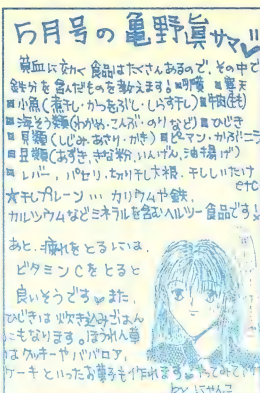 5月号の亀野眞サマ!!
貧血に効く食品はたくさんあるので、その中で
鉄分を含んだものを教えます! ■卵黄 ■寒天
■小魚(煮干し・かつをぶし・しらす干し) ■牛肉(もも)
■海そう類(わかめ・こんぶ・のりなど) ■ひじき
■貝類(しじみ・あさり・かき) ■ピーマン・かぶ・ニラ
■豆類(あずき、きな粉、いんげん、油揚げ)
■レバー、パセリ、切り干し大根、干ししいたけ
etc
☆干しプルーン… カリウムや鉄、
カルシウムなどミネラルを含むヘルシー食品です!
あと、疲れをとるには、
ビタミンCをとると
良いそうです。また、
ひじきは炊き込みごはん
にもなります。ほうれん草
はクッキーやババロア、
ケーキといったお菓子も作れます。やってみて
by にゃんこ